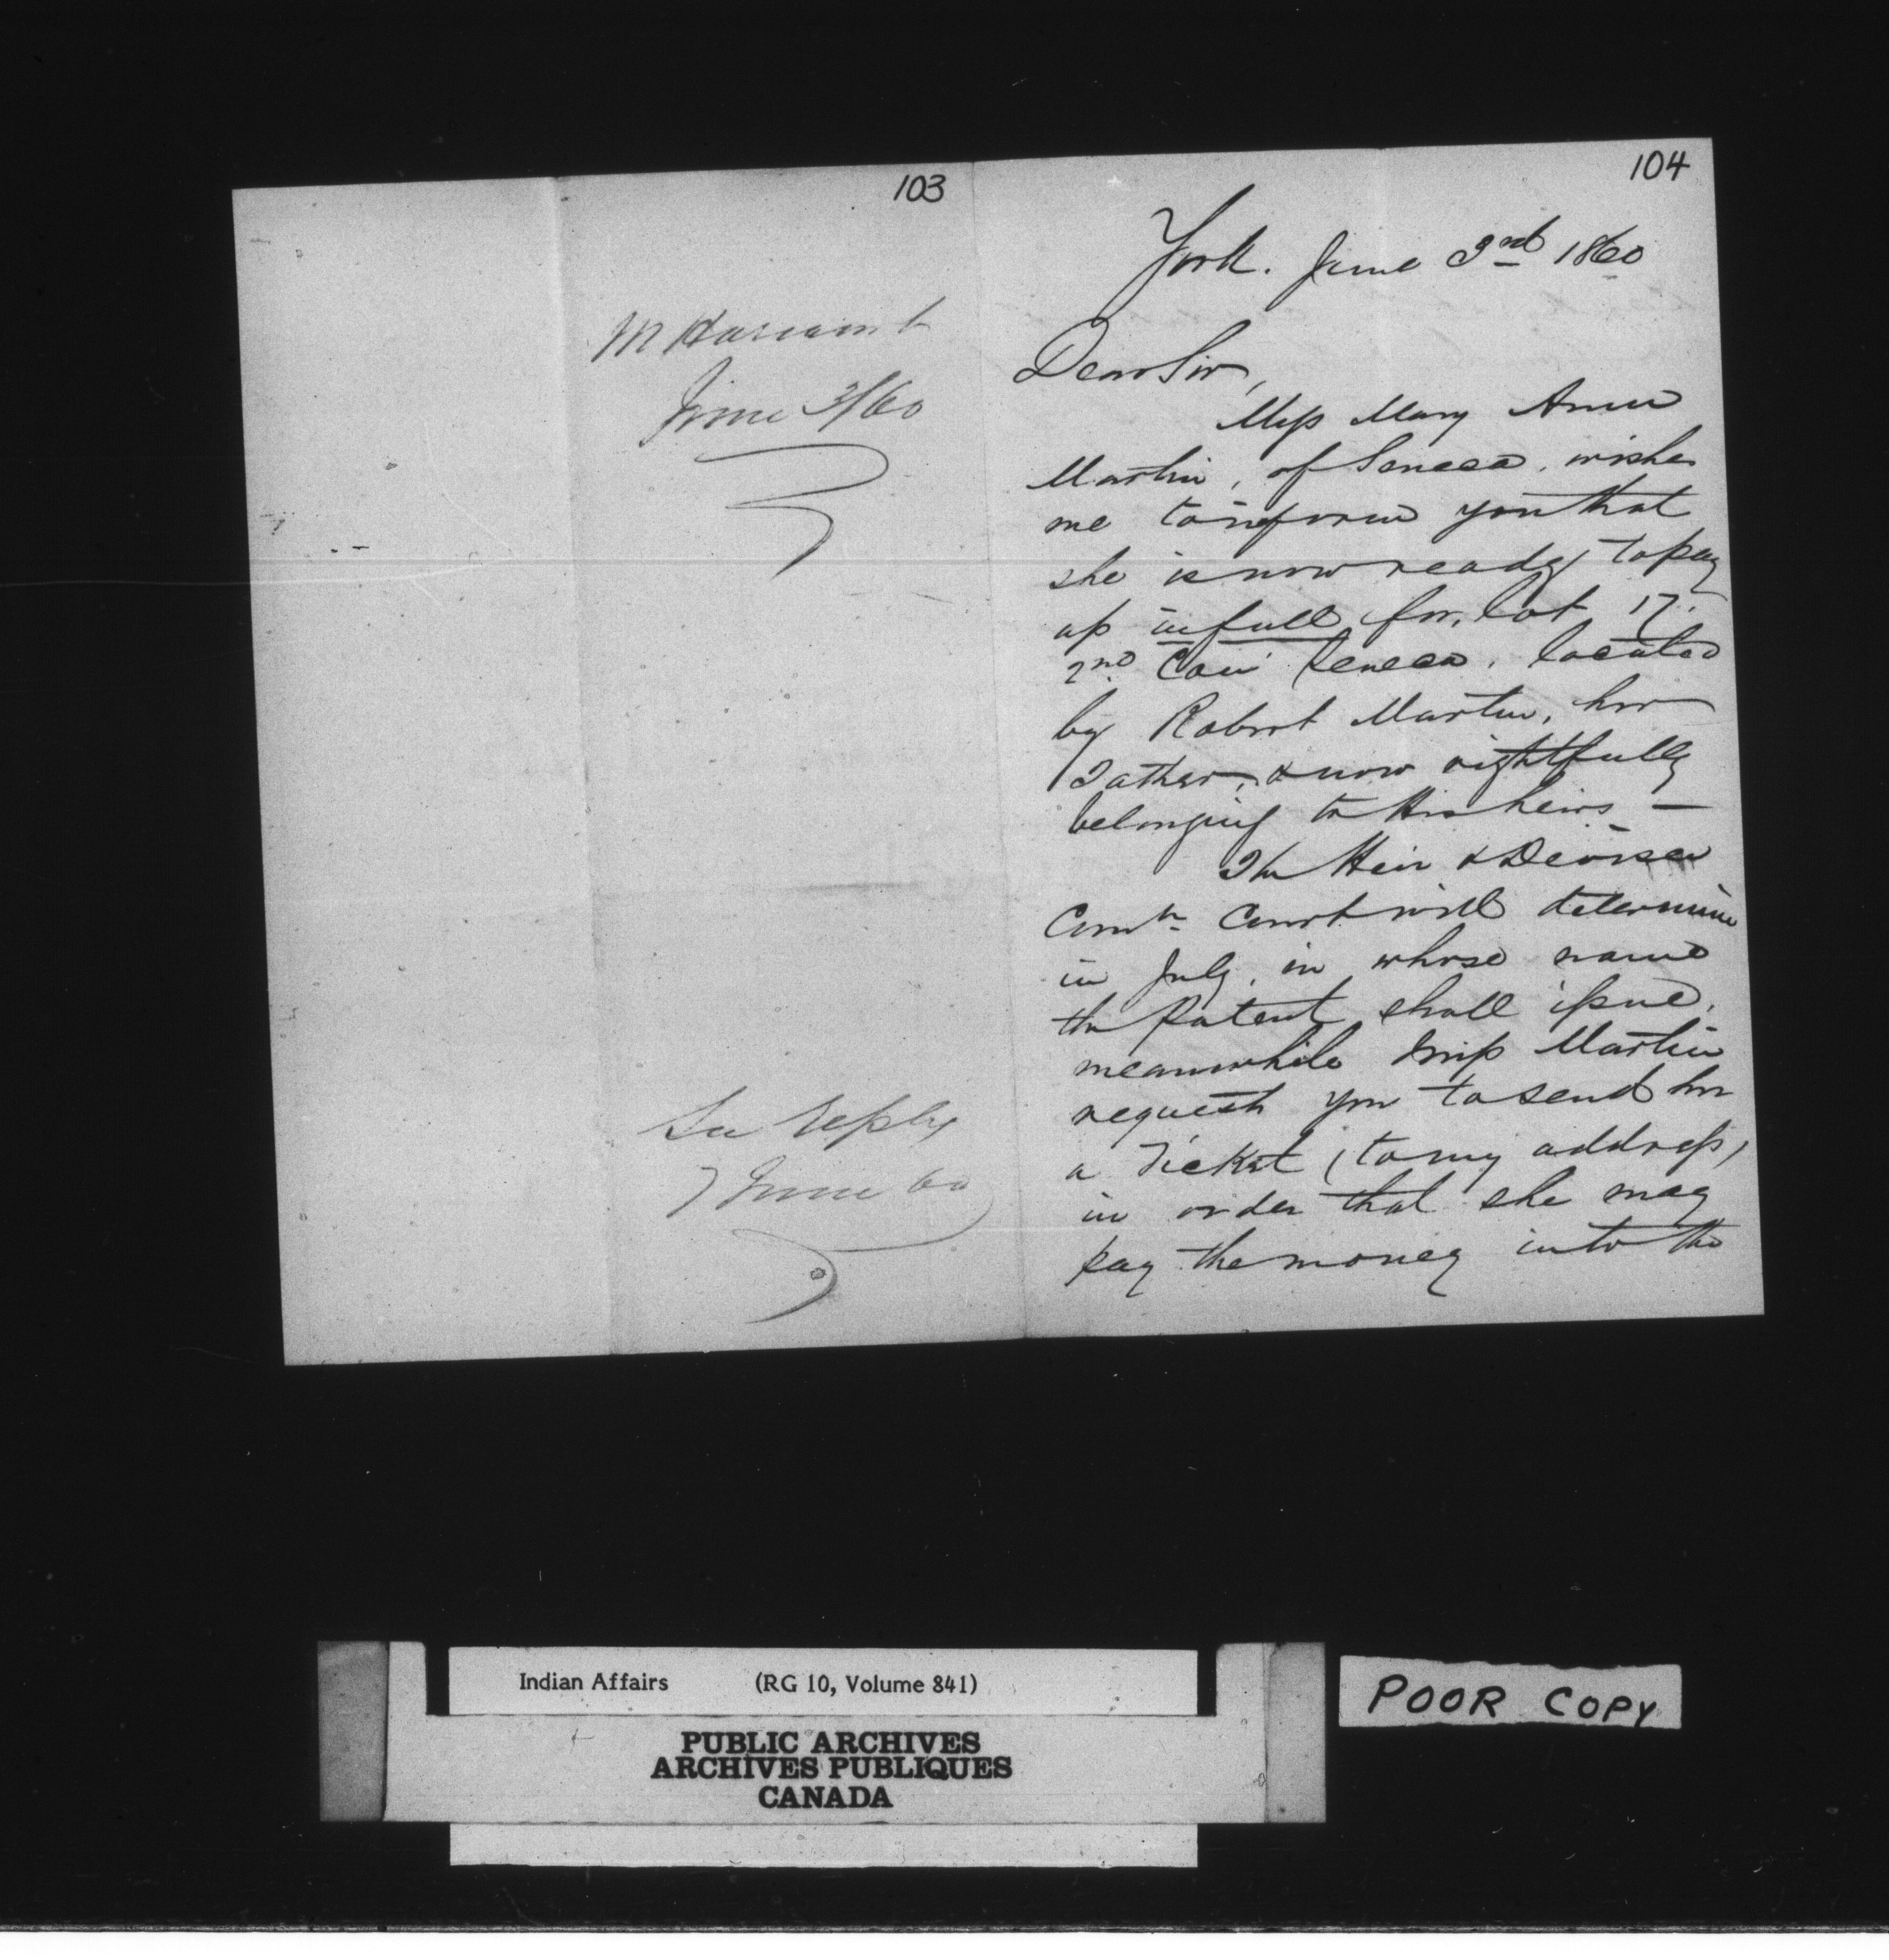 103
M Harcourt
June 3/60
See reply
7 June 60
104
York. June 3rd 1860
Dear Sir,
Miss Mary Anne
Martin, of Seneca, wishes
me to inform you that
she is now ready to pay
up in full for, lot 17.
2nd Con Seneca. located
by Robert Martin, her
Father, & now rightfully
belonging to His heirs —
The Heir & Devisee
Court will determine
in July, in whose name
the Patent shall issue,
meanwhile Miss Martin
requests you to send her
a Ticket (to my address)
in order that she may
pay the money into the
Indian Affairs (RG 10, Volume 841)
PUBLIC ARCHIVES
ARCHIVES PUBLIQUES
CANADA
POOR COPY